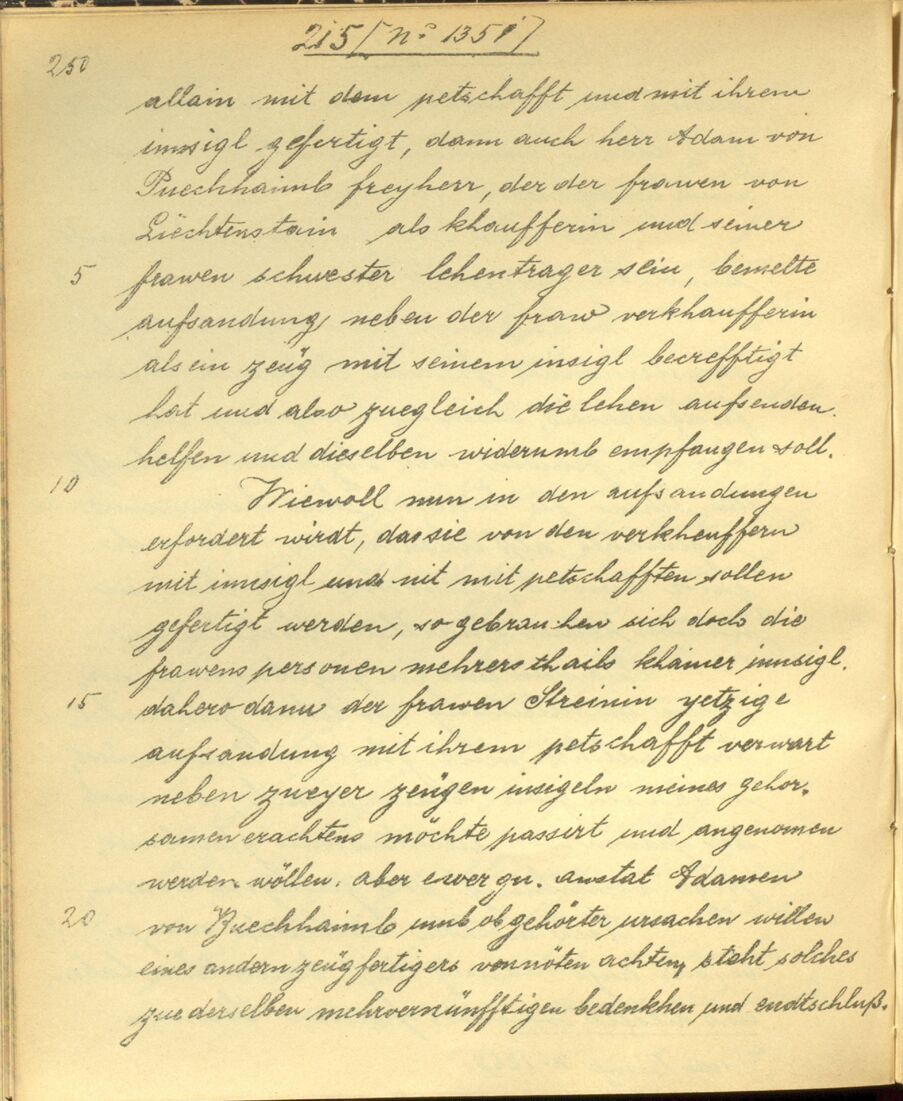 215/[n° 1351]
250
allain mit dem petschafft und mit ihrem
innsigl gefertigt, dann auch herr Adam von
Puechhaimb freyherr, der der frawen von
Liechtenstain als khaufferin und seiner
5 frawen schwester lehentrager sein, bemelte
aufsandung neben der fraw verkhaufferin
als ein zeüg mit seinem insigl becrefftigt
hat und also zuegleich die lehen aufsenden
helfen und dieselben widerumb empfangen soll.
10 Wiewoll nun in den aufsandungen
erfordert wirdt, das sie von den verkheuffern
mit innsigl und nit mit petschafften sollen
gefertigt werden, so gebrauhen sich doch die
frawens personen mehrers thails khainer innsigl.
15 dahero dann der frawen Streinin yetzige
aufsandung mit ihrem petschafft verwart
neben zweyer zeügen insigeln meines gehor-
samen erachtens möchte passirt und angenomen
werden wöllen. aber ewer gn. anstat Adamen
20 von Puechhaimb umb obgehörter ursachen willen
eines andern zeügfertigers vonnöten achten, steht solches
zue derselben mehrvernünfftigen bedenkhen und endtschluß.